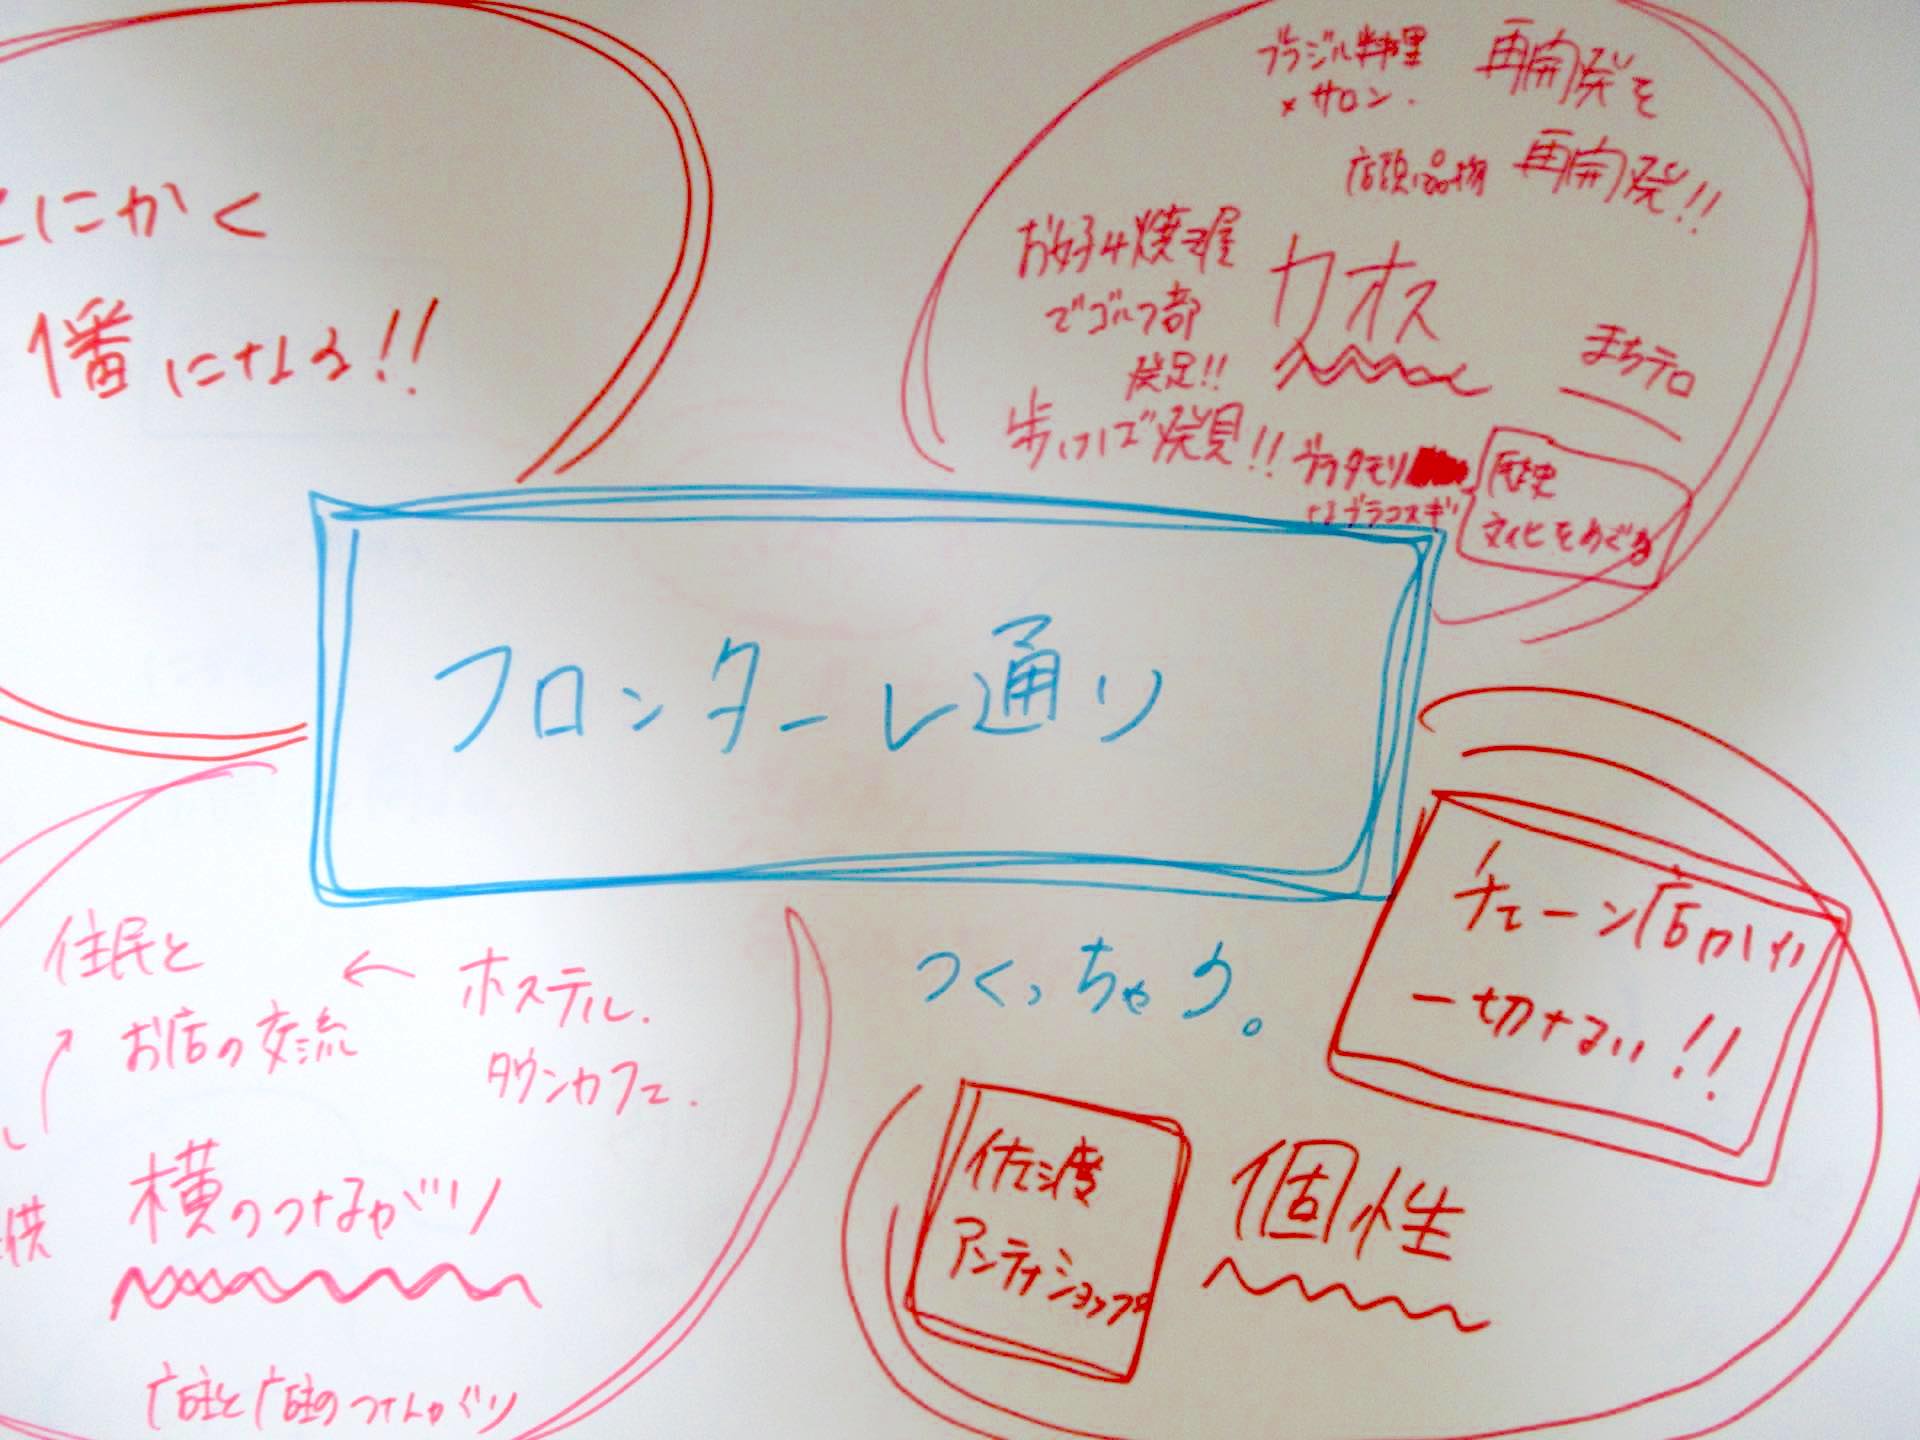 とにかく
1番になる!!
ブラジル料理
×サロン.
再開発を
再開発!!
店頭品物
お好み焼き屋
でゴルフ部
発足!!
カオス
まちテロ
歩けば発見!!
ブラタモリ
ブラコスギ
歴史
文化をめぐる
フロンターレ通り
つくっちゃう。
チェーン店が
一切ない!!
佐渡
アンテナショップ
個性
住民と
お店の交流
← ホステル.
タウンカフェ.
供
横のつながり
店主と店主のつながり